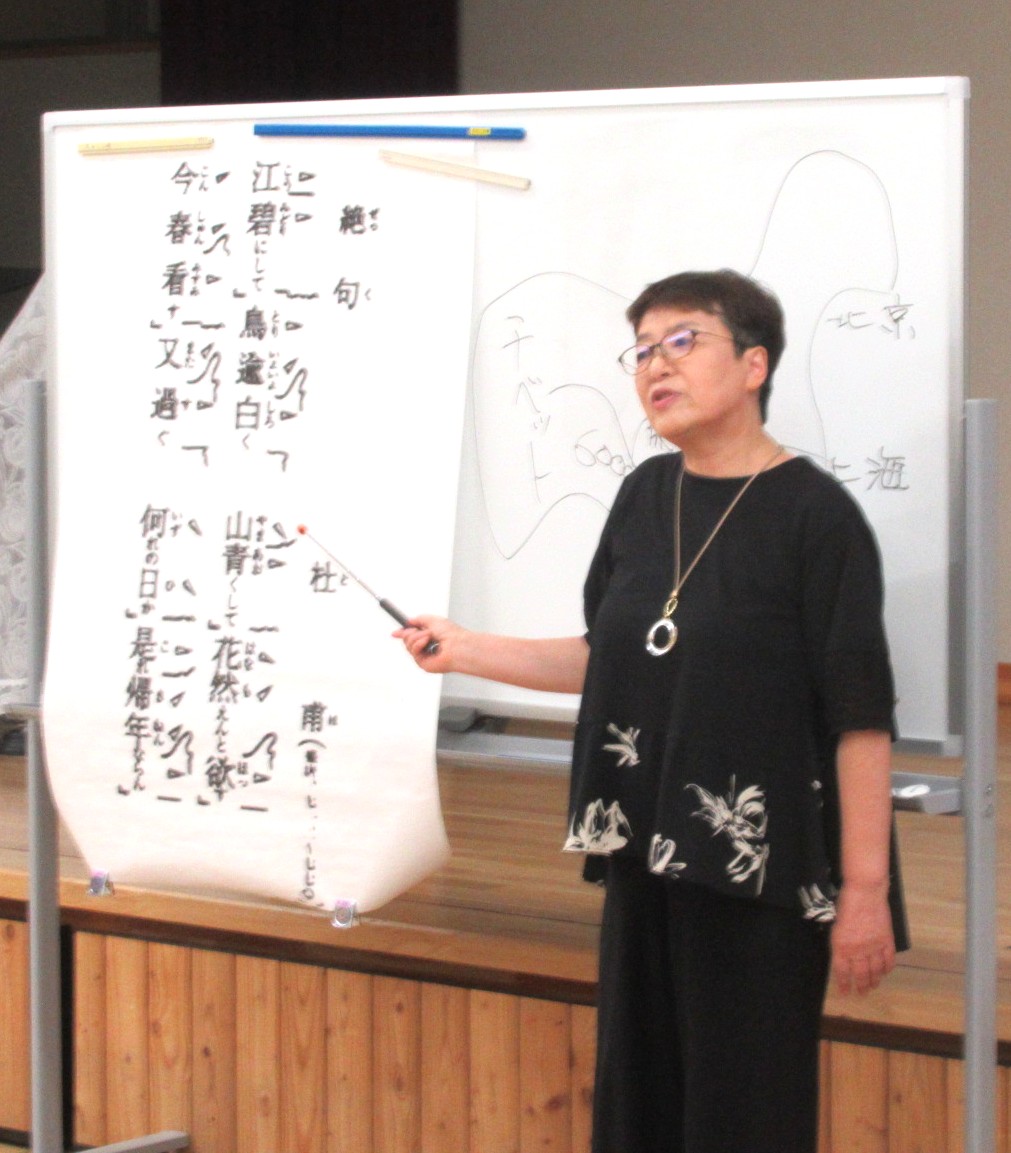 絶句
杜甫
江碧にして鳥逾白く
山青くして花然えんと欲す
今春看す又過ぐ
何れの日か是れ帰年ならん
チベット
北京
上海